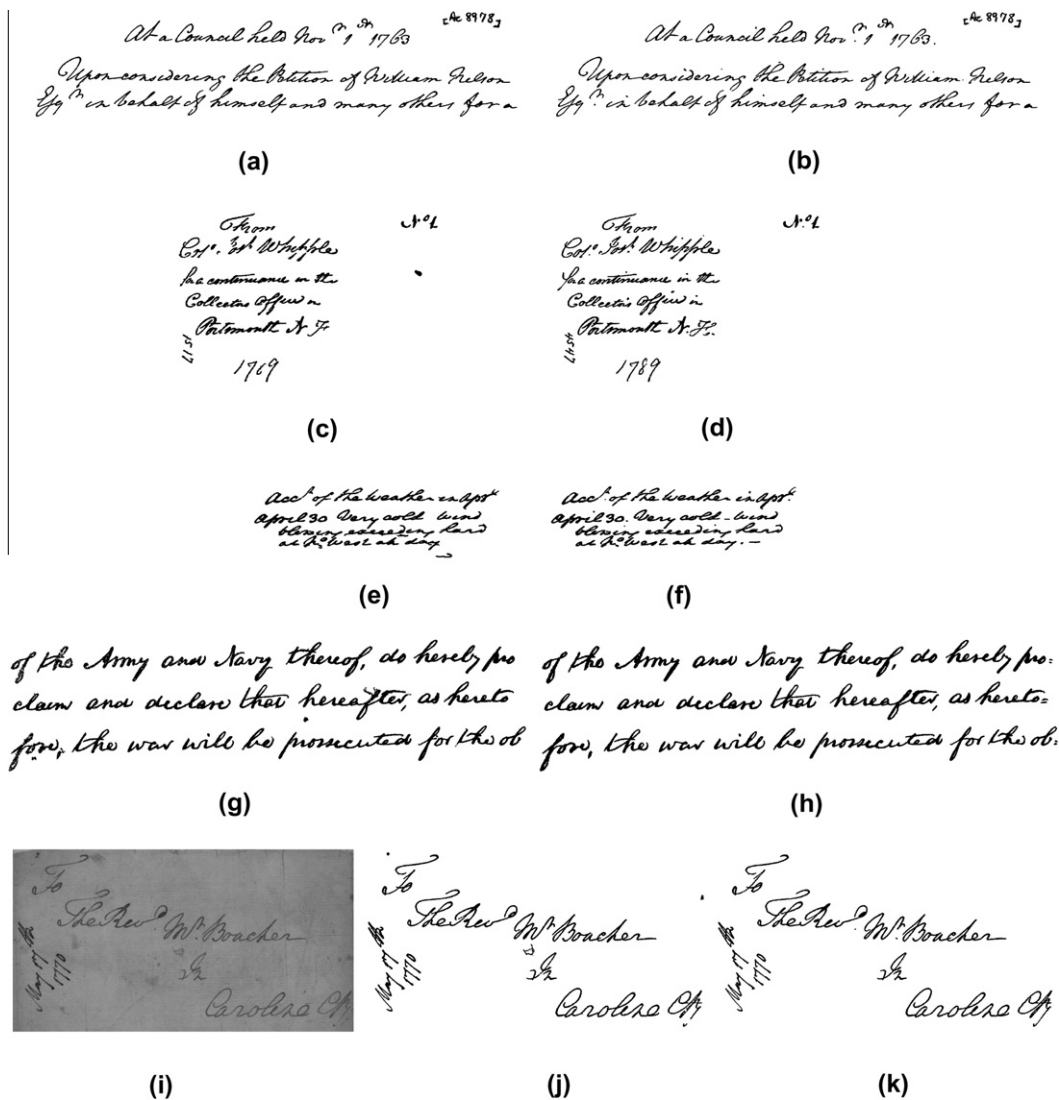 [Ac 8978]
At a Council held Nov.r 1st 1763
Upon considering the Petition of William Nelson
Esq.r in behalf of himself and many others for a
(a)
[Ac 8978]
At a Council held Nov.r 1st 1763.
Upon considering the Petition of William Nelson
Esq.r in behalf of himself and many others for a
(b)
From
Colo. Jos. Whipple
for a continuance in the
Collectors Office in
Portsmouth N. 
1769
No 1
(c)
From
Colo. Jos. Whipple
for a continuance in the
Collectors Office in
Portsmouth N. H.
1789
No. 1
(d)
Acct of the Weather in Apr
April 30 Very cold wind
blowing exceeding hard
at No West all day
(e)
Acct. of the Weather in Apr.
April 30. Very cold - wind
blowing exceeding hard
at No West all day. -
(f)
of the Army and Navy thereof, do hereby pro
claim and declare that hereafter, as hereto
fore, the war will be prosecuted for the ob
(g)
of the Army and Navy thereof, do hereby pro=
claim and declare that hereafter, as hereto=
fore, the war will be prosecuted for the ob=
(h)
To
The Revd Mr. Boucher
In
Caroline Cty
May 17
1770
(i)
To
The Revd Mr Boucher
In
Caroline Cty
May 17
1770
(j)
To
The Revd. Mr. Boucher
In
Caroline Cty
May 17
1770
(k)